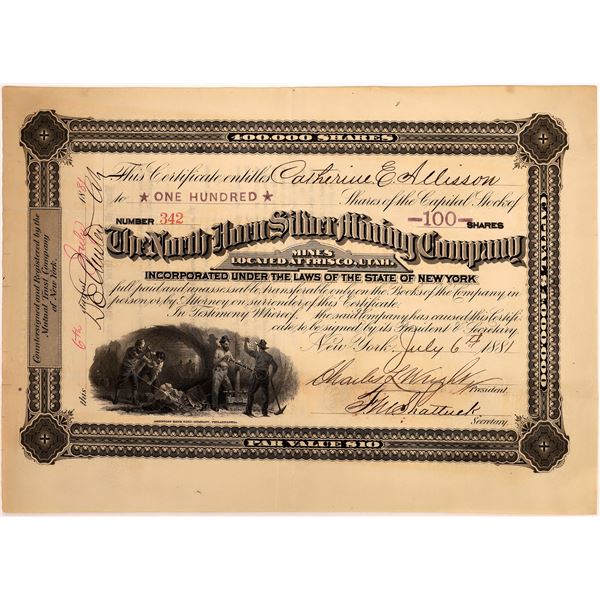 400,000 SHARES
This Certificate entitles Catherine E Allisson
to ★ ONE HUNDRED ★ Shares of the Capital Stock of
NUMBER 342 —100— SHARES
The North Horn Silver Mining Company
MINES
LOCATED AT FRISCO, UTAH.
INCORPORATED UNDER THE LAWS OF THE STATE OF NEW YORK
full paid and unassessable, transferable only on the Books of the Company in
person or by Attorney on surrender of this Certificate.
In Testimony Whereof, the said Company has caused this Certifi-
cate to be signed by its President & Secretary.
New York, July 6th 1881
Charles L Wright
President.
F W Shattuck
Secretary.
AMERICAN BANK NOTE COMPANY, PHILADELPHIA.
PAR VALUE $10
Countersigned and Registered by the
Mutual Trust Company
of New York.
this 6th day of July 1881
CAPITAL $4,000,000